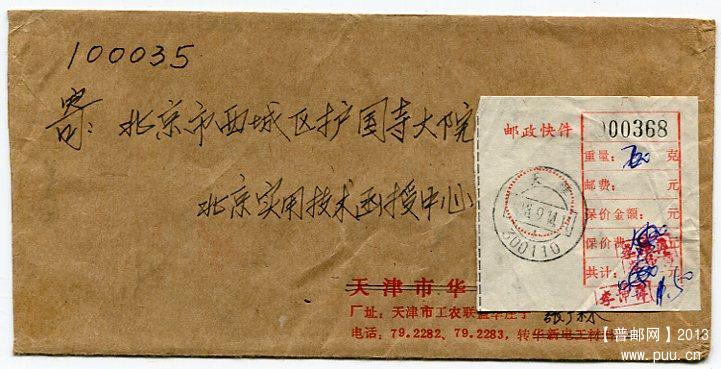 100035
寄: 北京市西城区护国寺大院
北京实用技术函授中心
邮政快件
000368
重量: 克
邮费: 元
保价金额: 元
保价费: 元
共计: 元
1.50
天津
300110
天津市华
厂址: 天津市工农联盟
电话: 79.2282、79.2283, 转华新电工材
【普邮网】2013
www.puu.cn